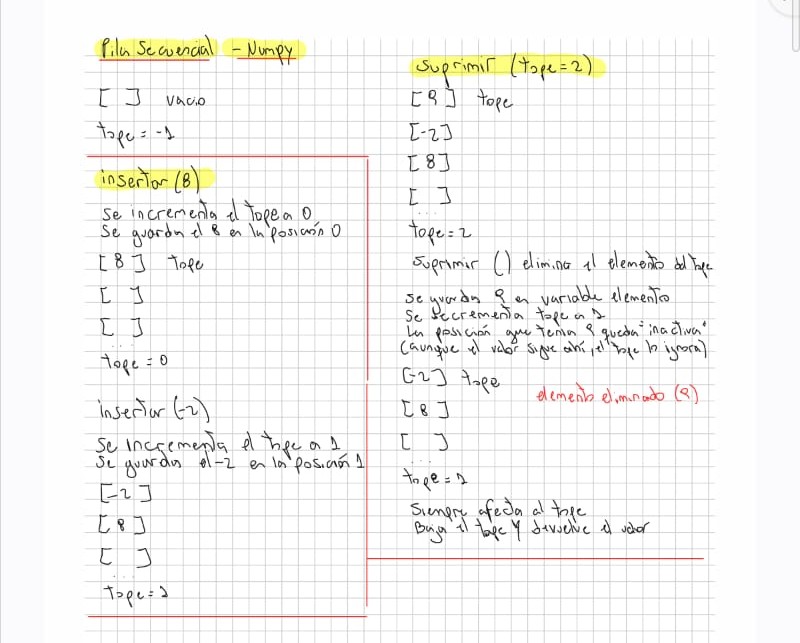 Pila Secuencial - Numpy
[ ] vacio
tope = -1
insertar (8)
Se incrementa el tope a 0
Se guarda el 8 en la posición 0
[ 8 ] tope
[ ]
[ ]
...
tope = 0
insertar (-2)
Se incrementa el tope a 1
Se guarda el -2 en la posición 1
[-2]
[ 8 ]
[ ]
...
tope = 1
Suprimir (tope = 2)
[ 9 ] tope
[-2]
[ 8 ]
[ ]
...
tope = 2
Suprimir () elimina el elemento del tope
se guarda 9 en variable elemento
Se decrementa tope a 1
La posición que tenia 9 queda "inactiva"
(aunque el valor sigue ahí, el tope lo ignora)
[-2] tope
elemento eliminado (9)
[ 8 ]
[ ]
...
tope = 1
Siempre afecta al tope
Baja el tope y devuelve el valor